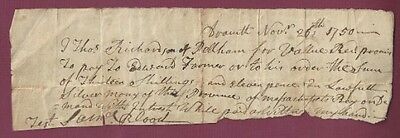 Novr 26th 1750
I Thos Richardson of Pelham for Value Recd promis
to pay To Edward Farmer or to his order the Sum
of Thirteen Shillings and eleven pence in Lawfull
Silver money of this Province of Massachusets Bay on de
mand with Interest While paid as witness my hand
Test